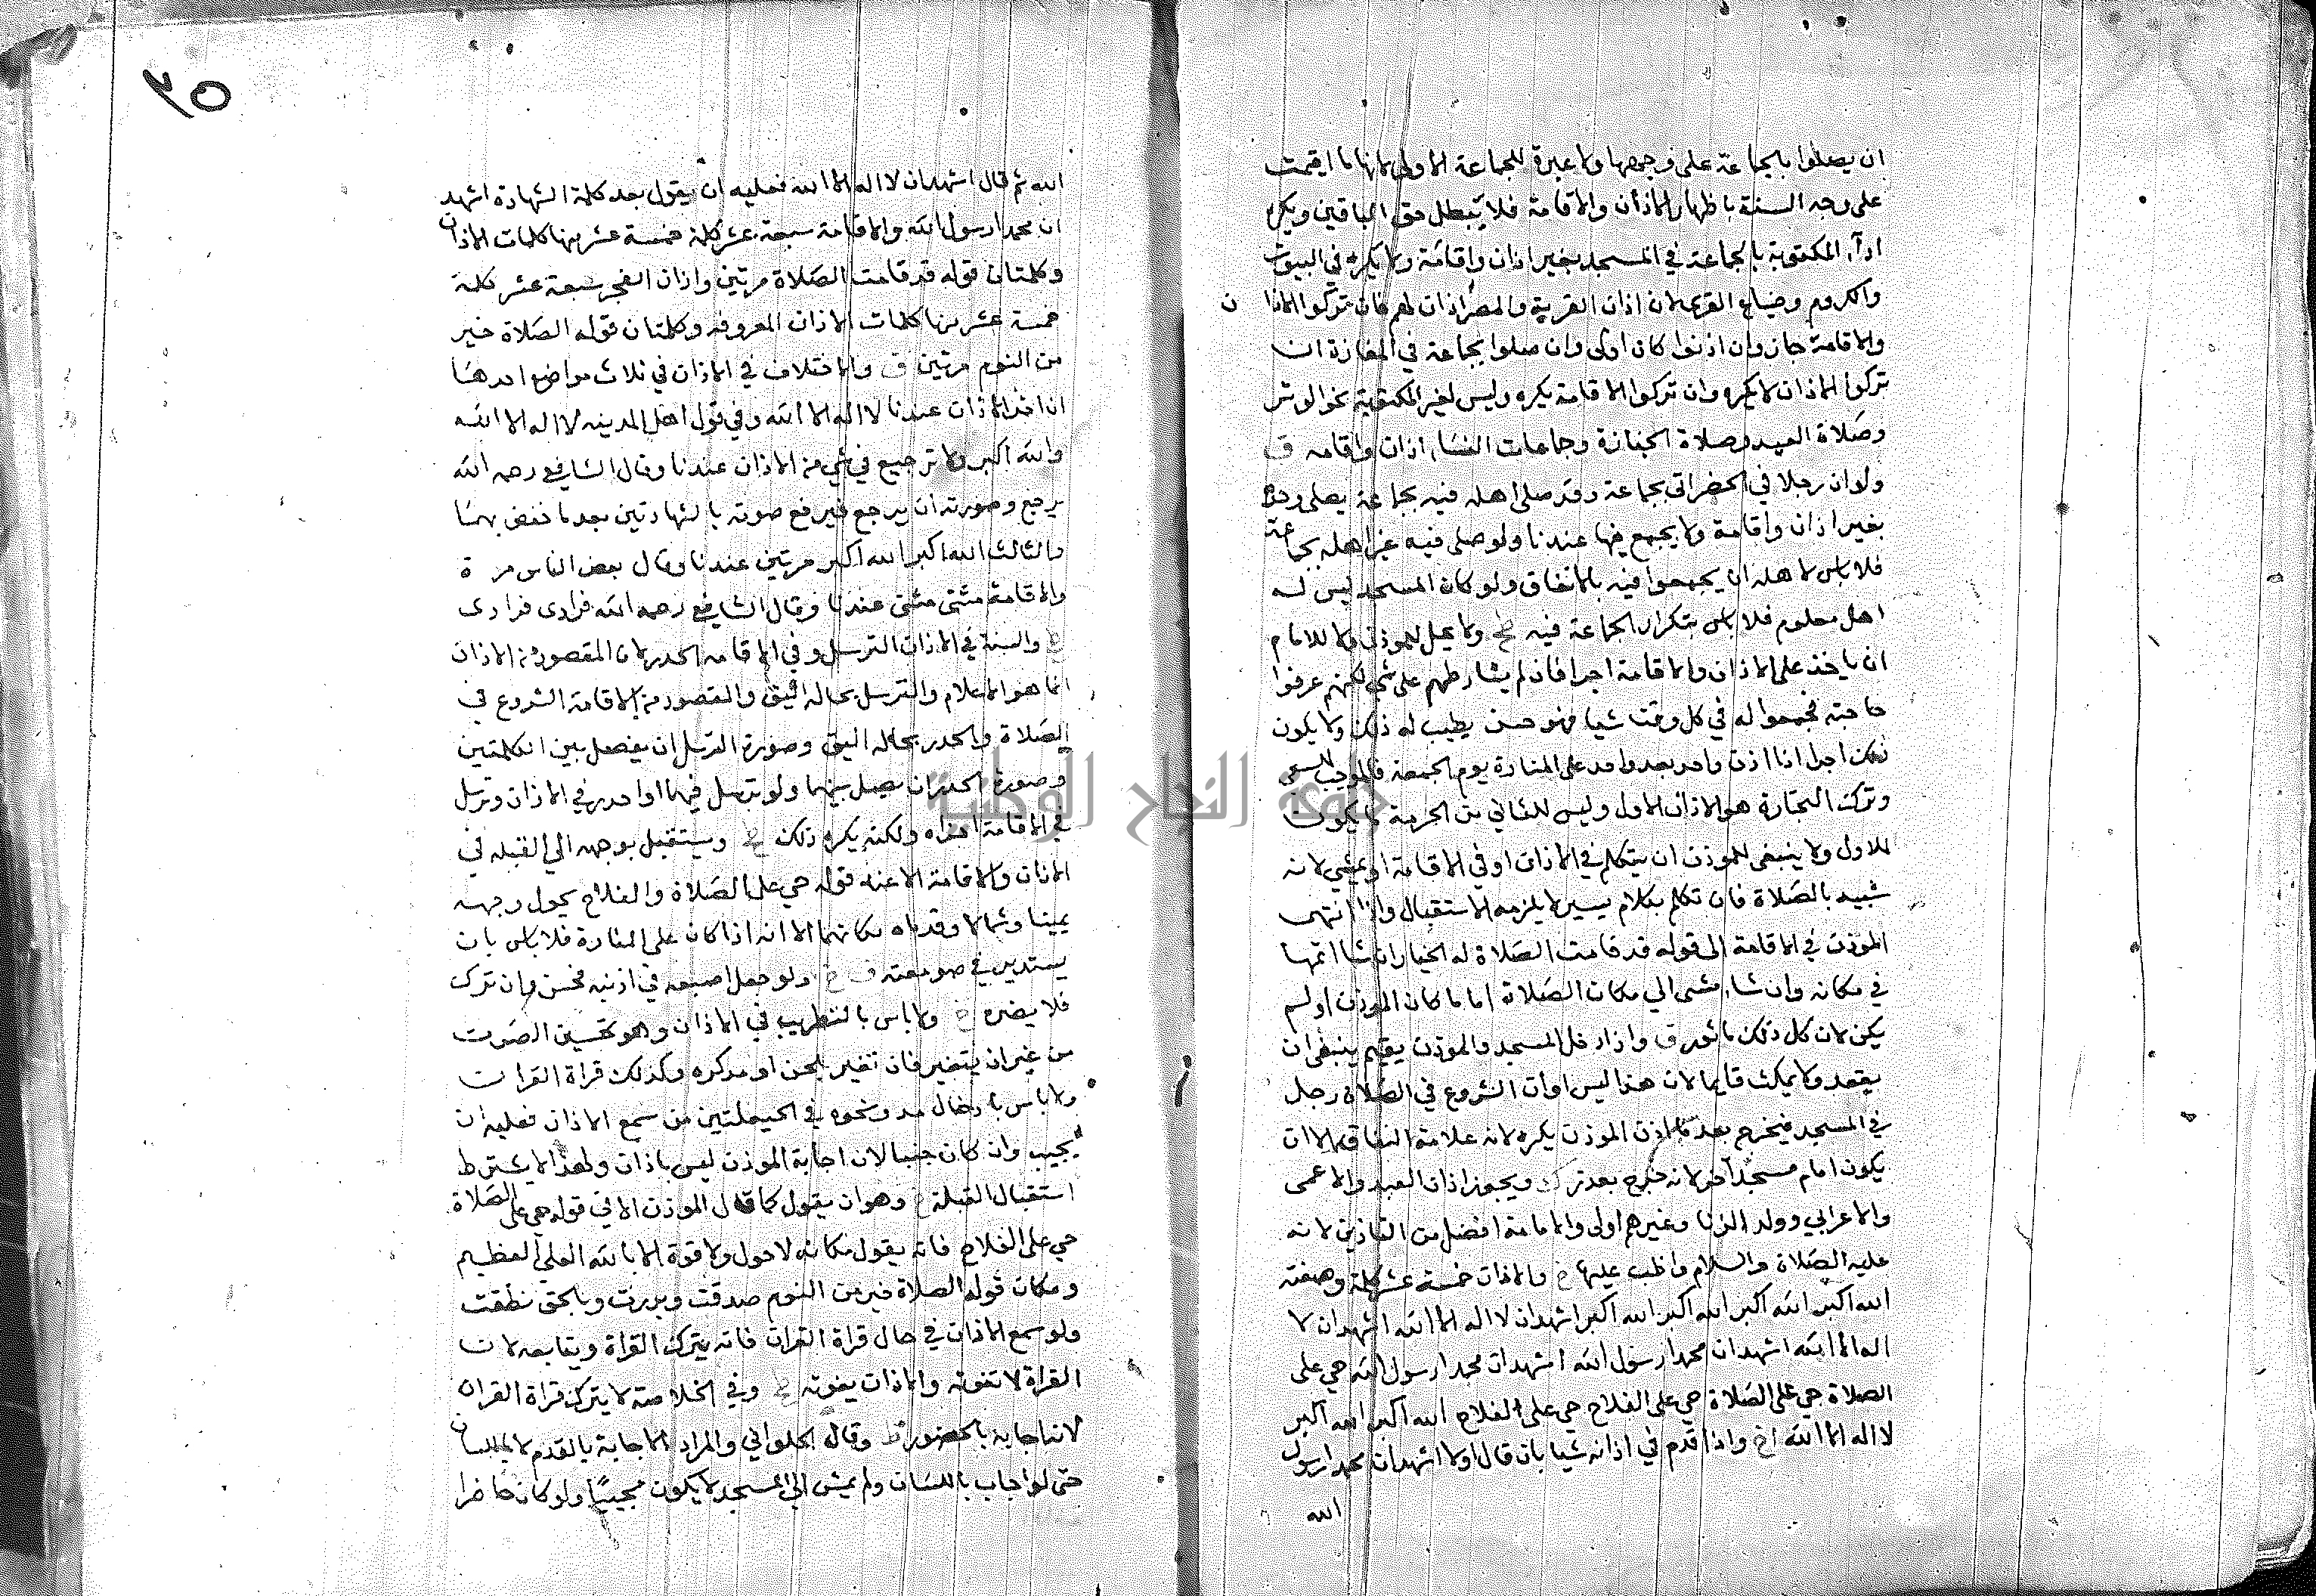 ان يصلوا بالجماعة على وجهها ولا عبرة للجماعة الاولى لانها ما اقيمت
على وجه السنة باظهار الاذان والاقامة فلا يبطل حق الباقين ويكره
اداء المكتوبة بالجماعة في المسجد بغير اذان واقامة ولا يكره في البيوت
والكروم وضياع القرى لان اذان القرية والمصر اذان لهم فان تركوا الاذان
والاقامة جاز وان اذنوا كان اولى وان صلوا بجماعة في المفازة ان
تركوا الاذان لا يكره وان تركوا الاقامة يكره وليس لغير المكتوبة نحو الوتر
وصلاة العيد وصلاة الجنازة وجماعات النسا اذان واقامه ق
ولو ان رجلا في الحضر اتى بجماعة وقد صلى اهله فيه بجماعة يصلي وحده
بغير اذان واقامة ولا يجمع فيها عندنا ولو صلى فيه غير اهله بجماعة
فلا باس لاهله ان يجمعوا فيه بالاتفاق ولو كان المسجد ليس له
اهل معلوم فلا باس بتكرار الجماعة فيه ولا يحل للموذن ولا للامام
ان ياخذ على الاذان والاقامة اجرا فان لم يشارطهم على شي لكنهم عرفوا
حاجته فجمعوا له في كل وقت شيا فهو حسن يطيب له ذلك ولا يكون
ذلك اجرا اذا اذن واحد بعد واحد على المنارة يوم الجمعة فالموجب للسعي
وترك التجارة هو الاذان الاول وليس للثاني من الحرمة ما يكون
للاول ولا ينبغي للموذن ان يتكلم في الاذان او في الاقامة او يمشي لانه
شبيه بالصلاة فان تكلم بكلام يسير لا يلزمه الاستقبال واذا انتهى
الموذن في الاقامة الى قوله قد قامت الصلاة له الخيار ان شا اتمها
في مكانه وان شا مشى الي مكان الصلاة اماما كان الموذن او لم
يكن لان كل ذلك ماثور ق واذا دخل المسجد والموذن يقيم ينبغي ان
يقعد ولا يمكث قايما لان هذا ليس اوان الشروع في الصلاة رجل
في المسجد فيخرج بعد ما اذن الموذن يكره لانه علامة النفاق الا ان
يكون امام مسجد آخر لانه خرج بعد ترك ويجوز اذان العبد والاعمى
والاعرابي وولد الزنا وغيرهم اولى والامامة افضل من التاذين لانه
عليه الصلاة والسلام واظب عليها خ والاذان خمسة عشر كلمة وصفته
الله اكبر الله اكبر الله اكبر الله اكبر اشهد ان لا اله الا الله اشهد ان لا
اله الا الله اشهد ان محمدا رسول الله اشهد ان محمدا رسول الله حي على
الصلاة حي على الصلاة حي على الفلاح حي على الفلاح الله اكبر الله اكبر
لا اله الا الله خ واذا قدم في اذانه شيا بان قال اولا اشهد ان محمدا رسول
الله
٣٥
الله ثم قال اشهد ان لا اله الا الله فعليه ان يقول بعد كلمة الشهادة اشهد
ان محمدا رسول الله والاقامة سبعة عشر كلمة خمسة عشر منها كلمات الاذان
وكلمتان قوله قد قامت الصلاة مرتين واذان الفجر سبعة عشر كلمة
خمسة عشر منها كلمات الاذان المعروفه وكلمتان قوله الصلاة خير
من النوم مرتين ق والاختلاف في الاذان في ثلاث مواضع احدها
ان اخر الاذان عندنا لا اله الا الله وفي قول اهل المدينه لا اله الا الله
والله اكبر ولا ترجيع في شي من الاذان عندنا وقال الشافعي رحمه الله
يرجع وصورته ان يرجع فيرفع صوته بالشهادتين بعد ما خفض بهما
والثالث الله اكبر الله اكبر مرتين عندنا وقال بعض الناس مرة
والاقامة مثنى مثنى عندنا وقال الشافعي رحمه الله فرادى فرادى
خ والسنة في الاذان الترسل وفي الاقامه الحدر لان المقصود من الاذان
انما هو الاعلام والترسل بحاله اليق والمقصود من الاقامة الشروع في
الصلاة والحدر بحاله اليق وصورة الترسل ان يفصل بين الكلمتين
وصورة الحدر ان يصل بينهما ولو ترسل فيهما او احدر في الاذان وترسل
في الاقامة اجزاه ولكنه يكره ذلك خ ويستقبل بوجهه الي القبله في
الاذان والاقامة الا عند قوله حي على الصلاة والفلاح يحول وجهه
يمينا وشمالا وقدماه مكانهما الا انه اذا كان على المنارة فلا باس بان
يستدير في صومعته ق خ ولو جعل اصبعه في اذنيه فحسن وان ترك
فلا يضره خ ولا باس بالتطريب في الاذان وهو تحسين الصوت
من غير ان يتغير فان تغير بلحن او مد كره وكذلك قراة القران
ولا باس بادخال مد ونحوه في الحيعلتين من سمع الاذان فعليه ان
يجيب وان كان جنبا لان اجابة الموذن ليس باذان ولهذا لا يشترط
استقبال القبلة خ وهو ان يقول كما قال الموذن الا في قوله حي على الصلاة
حي على الفلاح فانه يقول مكانه لا حول ولا قوة الا بالله العلي العظيم
ومكان قوله الصلاة خير من النوم صدقت وبررت وبالحق نطقت
ولو سمع الاذان في حال قراة القران فانه يترك القراة ويتابعه لان
القراة لا تفوته والاذان يفوته خ وفي الخلاصة لا يترك قراة القران
لانه اجابه بالحضور وقال الحلواني والمراد الاجابة بالقدم لا باللسان
حتى لو اجاب باللسان ولم يمش الى المسجد لا يكون مجيبا ولو كان حاضرا
جامعة النجاح الوطنية